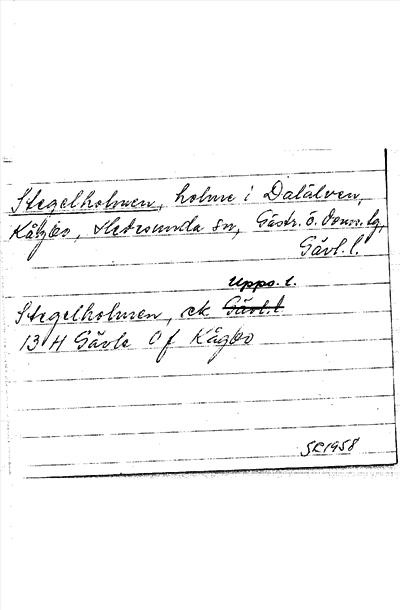 Stegelholmen, holme i Dalälven,
Kågbo, Hedesunda sn, Gästr. ö. doms. tg,
Gävl. l.
Upps. l.
Stegelholmen, ek Gävl. l.
13 H Gävle 0 f Kågbo
SR1958